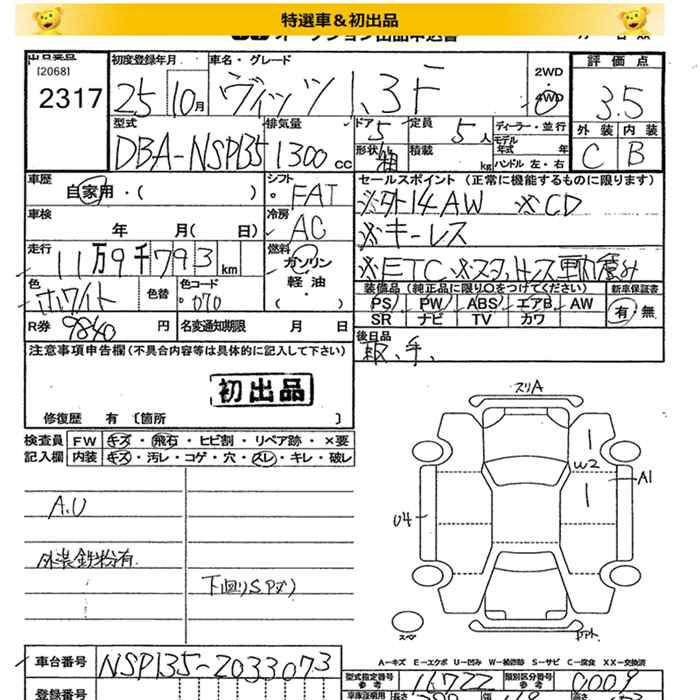 特選車＆初出品
オークション出品申込書
出品番号 初度登録年月 車名・グレード 評価点
[2068]
2317
25 10月 ヴィッツ 1.3F
2WD
4WD
3.5
型式 排気量 ドア 定員 ディーラー・並行 外装 内装
DBA-NSP135 1300cc 5 5人 モデル年式 年式 C B
形状 箱 積載 kg ハンドル 左・右
車歴 シフト セールスポイント (正常に機能するものに限ります)
自家用・( ) FAT
※外14AW ※CD
車検 冷房
年 月( 日) AC
※キーレス
走行 燃料
11万9千793km ガソリン・軽油・
※ETC ※スタッドレス
色 色替 色コード 装備品(純正品に限り○をつけてください) 新車保証書
ホワイト 070
PS PW ABS エアB AW 有・無
SR ナビ TV カワ
R券 9840円 名変通知期限 月 日
後日品
取、手、
注意事項申告欄(不具合内容等は具体的に記入して下さい)
初出品
修復歴 有 〔箇所 〕
検査員 FW キズ・飛石・ヒビ割・リペア跡・×要
記入欄 内装 キズ・汚レ・コゲ・穴・スレ・キレ・破レ
A.U
外装鉄粉有
下回りSPズリ
スリA
1
W2
A1
1
U4
スペ
A-キズ E-エクボ U-凹み W-補修跡 S-サビ C-腐食 XX-交換済
車台番号 NSP135-2033073
型式指定番号 参考 16722 類別区分番号 参考 0009
登録番号